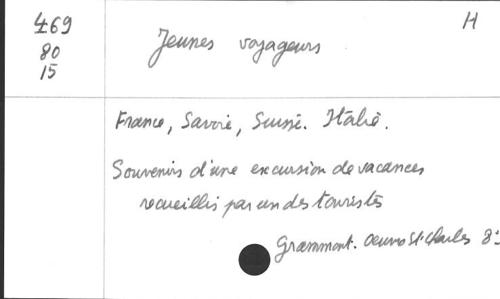 469
80
15
H
Jeunes voyageurs
France, Savoie, Suisse. Italie.
Souvenirs d'une excursion de vacances
recueillis par un des touristes
Grammont. Oeuvre St. Charles 8°